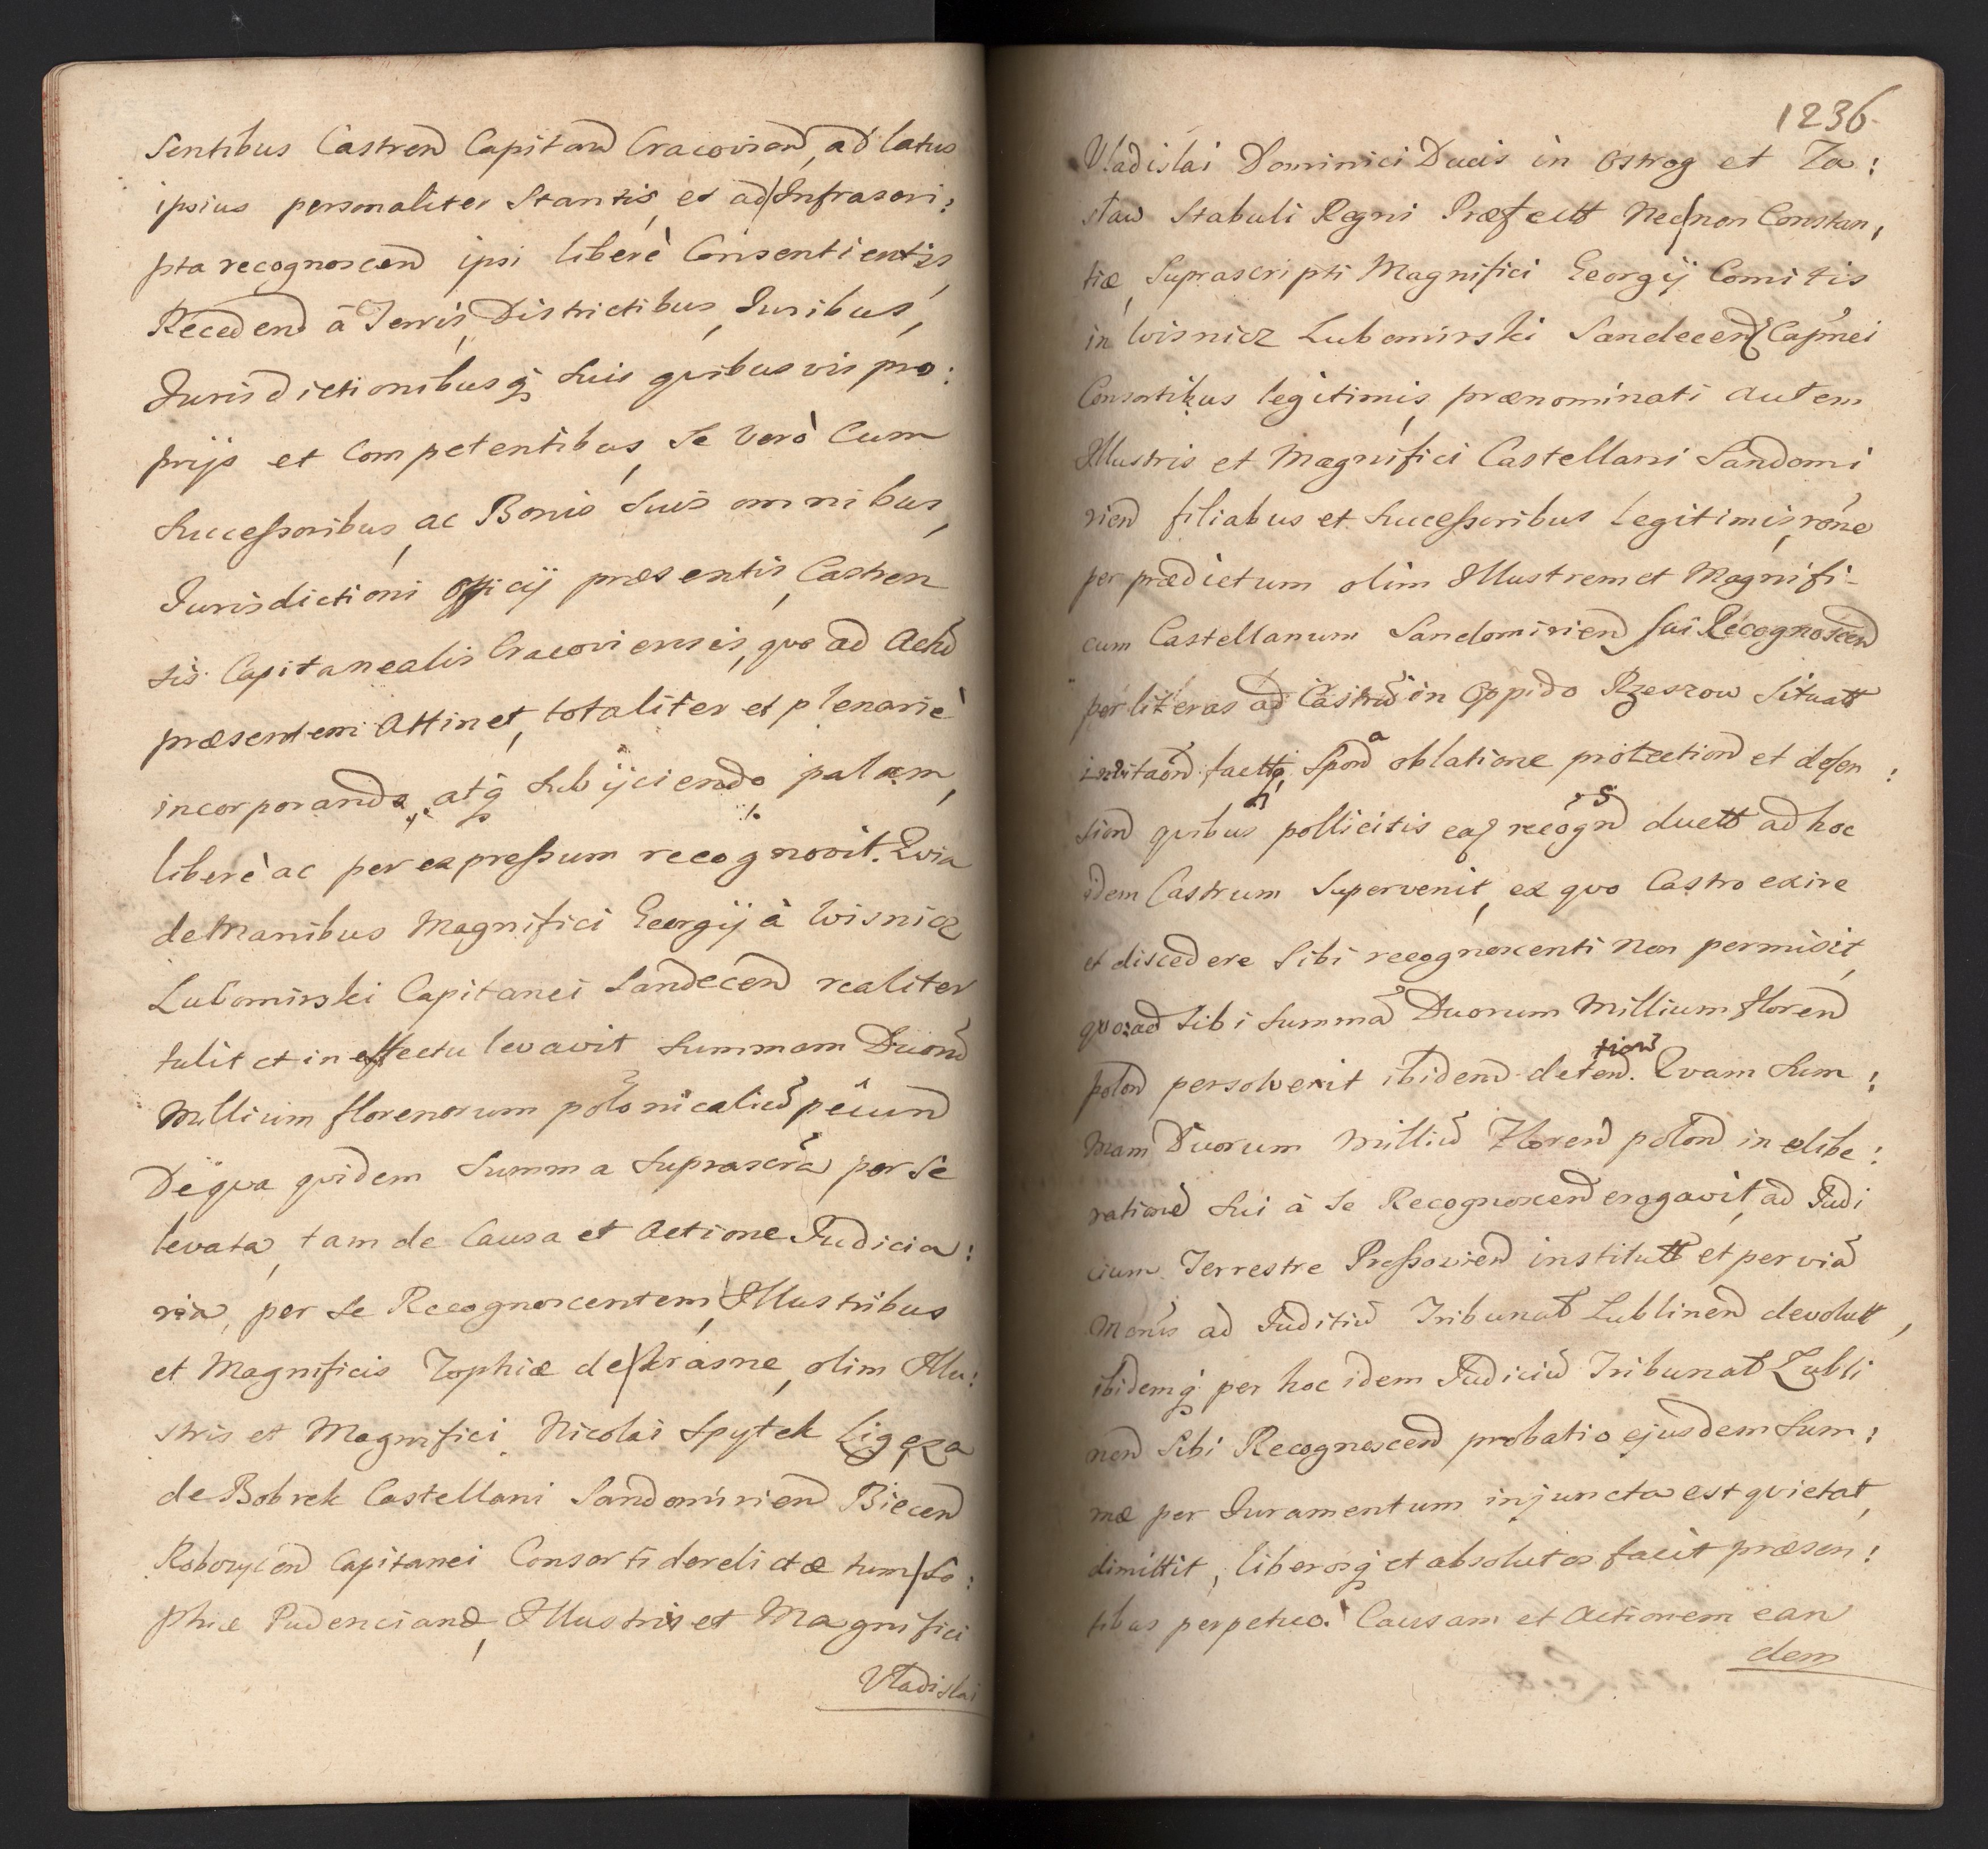 Sentibus Castren Capitan Cracovien, ad latus
ipsius personaliter Stantis, et ad Infrascri:
pta recognoscen ipsi liberè Consentientis,
Recedend à Terris, Districtibus, Juribus,
Jurisdictionibusq suis quibusvis pro:
prijs et Competentibus, Se verò Cum
Successoribus, ac Bonis Suis omnibus,
Jurisdictioni officij præsentis, Castren
sis Capitanealis Cracoviensis, quo ad Actu
præsentem Attinet, totaliter et plenariè
incorporando, atq Subijciendo palam,
liberè ac per expressum recognovit. Quia
de Manibus Magnifici Georgij à Wisnicz
Lubomirski Capitanei Sandecen realiter
tulit et in effectu levavit Summam Duoru
Millium florenorum polonicaliu pecun
De qua quidem Summa Suprascra per Se
levata, tam de Causa et Actione Judicia:
ria, per Se Recognoscentem, Illustribus
et Magnificis Zophiæ de Krasne, olim Illu:
stris et Magnifici Nicolai Spytek Ligęza
de Bobrek Castellani Sandomirien Biecen
Roborycen Capitanei Consorti derelictæ tum So:
phiæ Pudencianæ, Illustris et Magnifici
Vladislai
1236
Vladislai Dominici Ducis in Ostrog et Za:
slaw Stabuli Regni Præfectt Necnon Constan,
tiæ, Suprascripti Magnifici Georgij Comitis
in Wisnicz Lubomirski Sandecen Capnei
Consortibus legitimis, prænominati autem
Illustris et Magnifici Castellani Sandomi
rien filiabus et Successoribus legitimis, rone
per prædictum olim Illustrem et Magnifi-
cum Castellanum Sandomirien sui Recognoscen
per literas ad Castru in Oppido Rzeszow Situatt
factt, oblatione protection et defen:
sion quibus pollicitis recogn ductt ad hoc
idem Castrum Supervenit, ex quo Castro exire
et discedere Sibi recognoscenti non permisit,
quoad Sibi Summa Duorum Millium floren
polon persolverit ibidem detention. Quam Sum:
mam Duorum Milliu Floren polon in elibe:
ratione Sui à Se Recognoscen erogavit, ad Judi
cium Terrestre Pressovien institutt et per via
Monis ad Juditiu Tribunal Lublinen devolutt,
ibidemq per hoc idem Judiciu Tribunal Lubli
nen Sibi Recognoscen probatio ejusdem Sum:
mæ per Juramentum injuncta est quietat,
dimittit, liberosq et absolutos facit præsen:
tibus perpetuo. Causam et Actionem ean
dem